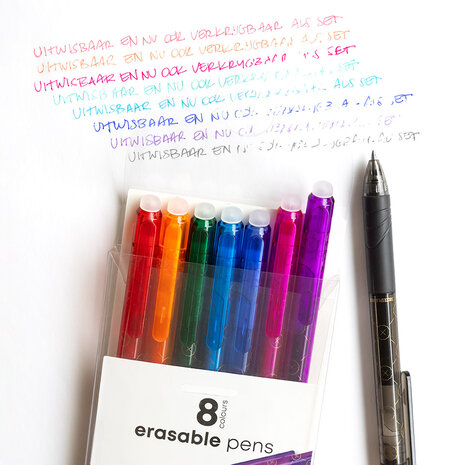 UITWISBAAR EN NU OOK VERKRIJGBAAR ALS SET
UITWISBAAR EN NU OOK VERKRIJGBAAR ALS SET
UITWISBAAR EN NU OOK VERKRIJGBAAR SET
UITWISBAAR EN NU OOK VERKR
UITWISBAAR EN NU OOK ALS SET
UITWISBAAR EN NU SET
UITWISBAAR EN NU
UITWISBAAR EN NU SET
8 colours
erasable pens